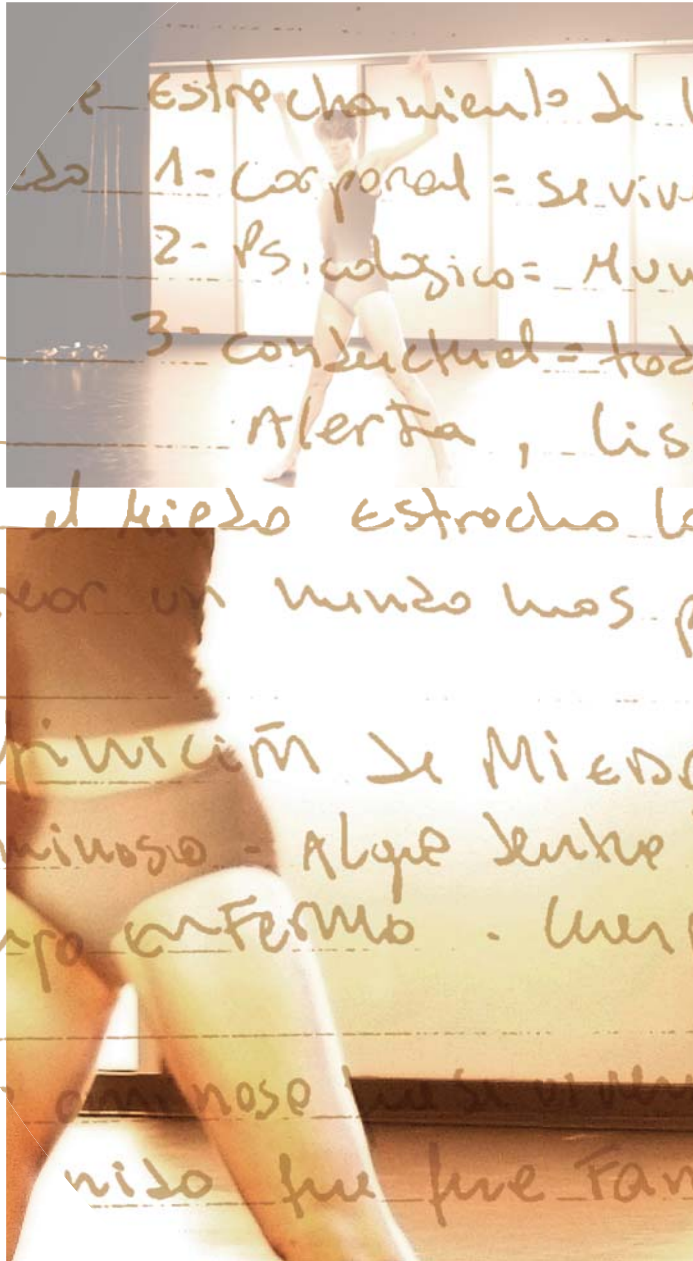 e estrechamiento de l
ido 1- Corporal = se viv
2- Psicologico = Mun
3- conductual = tod
Alerta, lis
el miedo estrecha l
un mundo mas p
finición de Miedo
minoso - Algo dentro
po enfermo. Cuerp
ominoso que se
nido que fue Fam